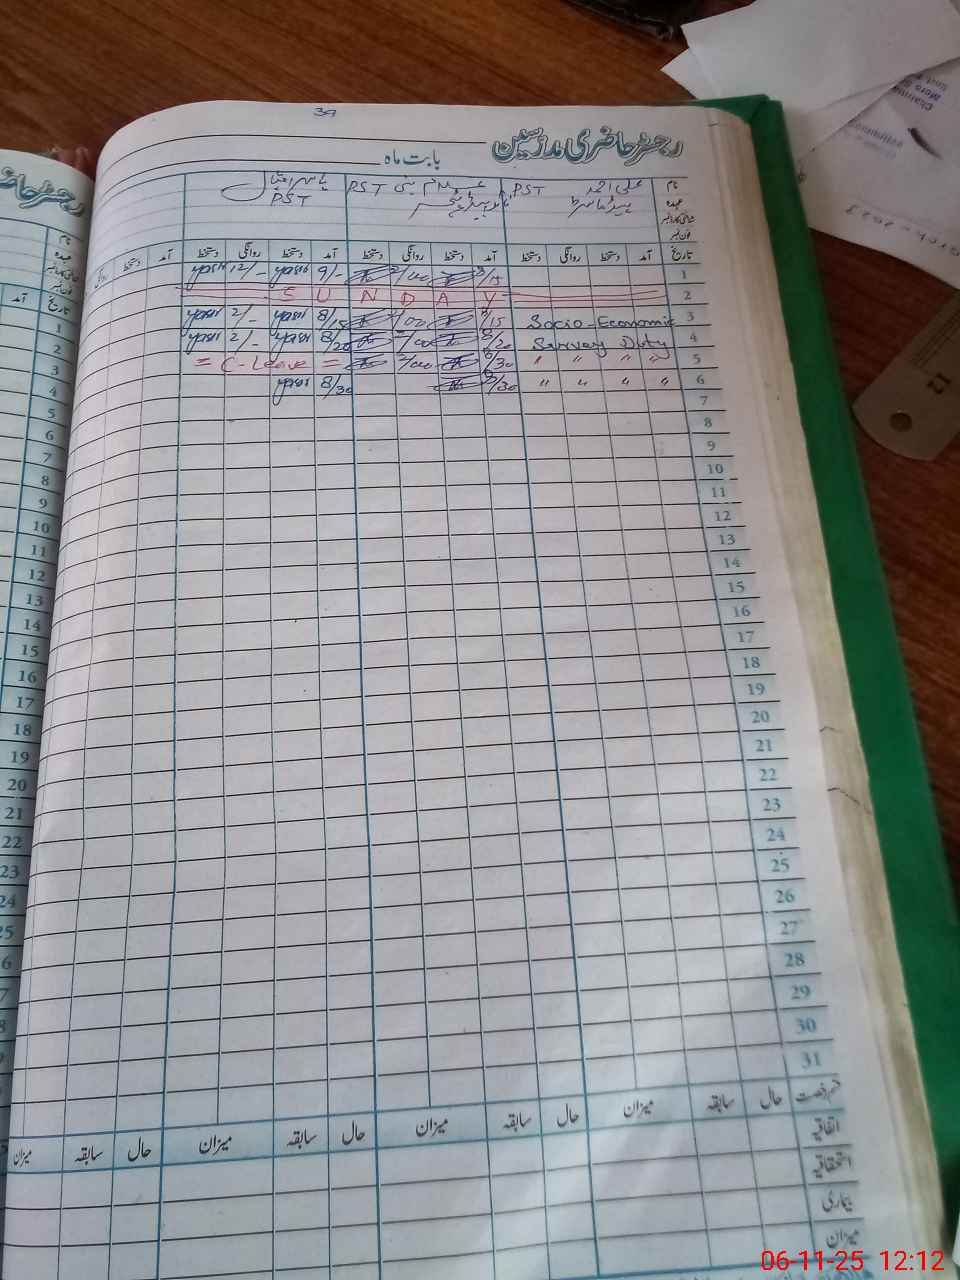 39
رجسٹر حاضری مدرسین
بابت ماہ
نام علی احمد PST PST یاسر اقبال
عہدہ ہیڈماسٹر PST
شناختی کارڈ نمبر
فون نمبر
تاریخ آمد دستخط روانگی دستخط آمد دستخط روانگی دستخط آمد دستخط روانگی دستخط آمد دستخط روانگی
1 8/15 2/00 9/- yasir 12/- yasir
2 S U N D A Y
3 Socio-Economic 8/15 2/00 8/15 yasir 2/- yasir
4 Servay Duty 8/20 2/00 8/20 yasir 2/- yasir
5 " " " " 8/30 2/00 = C-Leave =
6 " " " " 8/30 8/30 yasir
7
8
9
10
11
12
13
14
15
16
17
18
19
20
21
22
23
24
25
26
27
28
29
30
31
قسم رخصت حال سابقہ میزان حال سابقہ میزان حال سابقہ میزان حال سابقہ میزان
اتفاقیہ
استحقاقیہ
بیماری
میزان
06-11-25 12:12